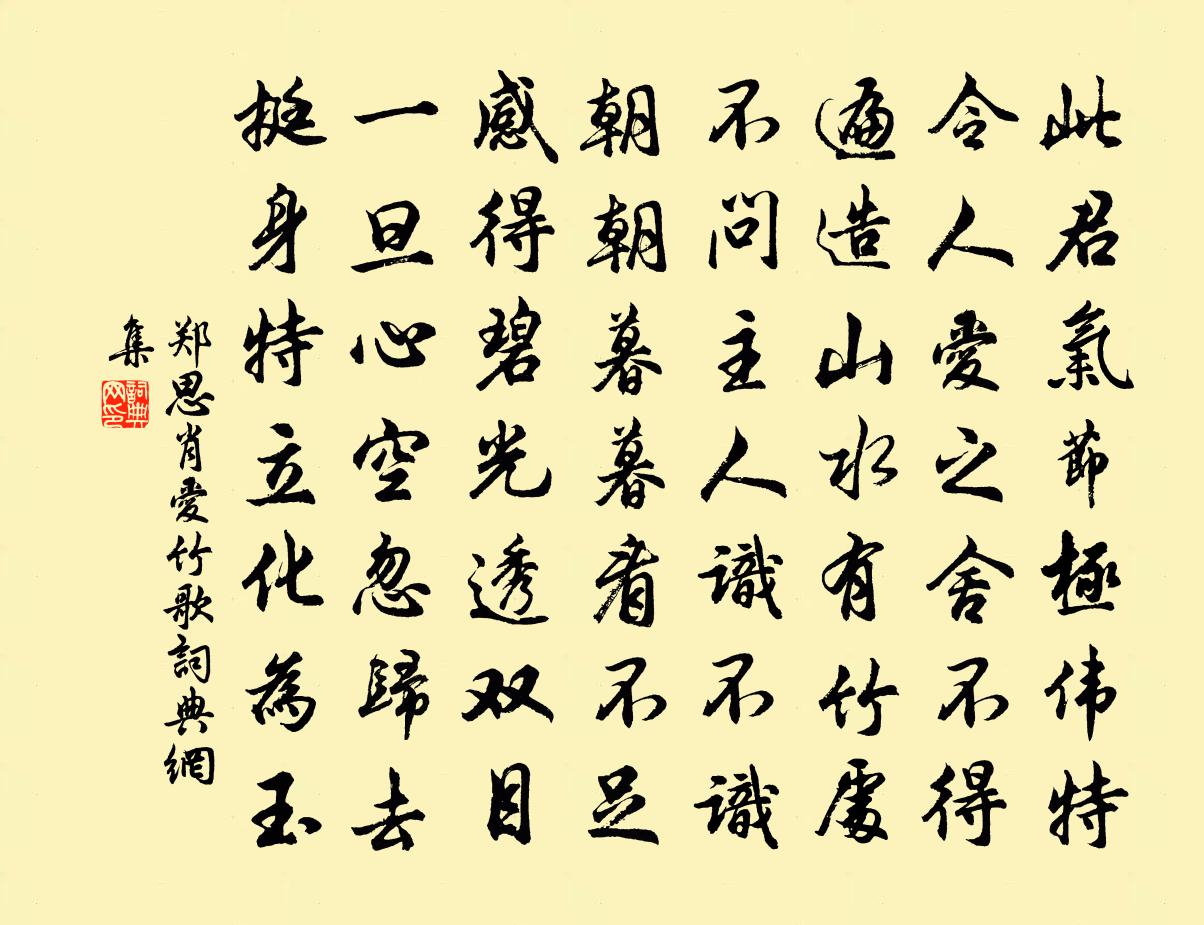 此君氣節極伟特
令人愛之舍不得
遍造山水有竹處
不問主人識不識
朝朝暮暮看不足
感得碧光透双目
一旦心空忽歸去
挺身特立化為玉
郑思肖愛竹歌詞典網
集
詞典網印